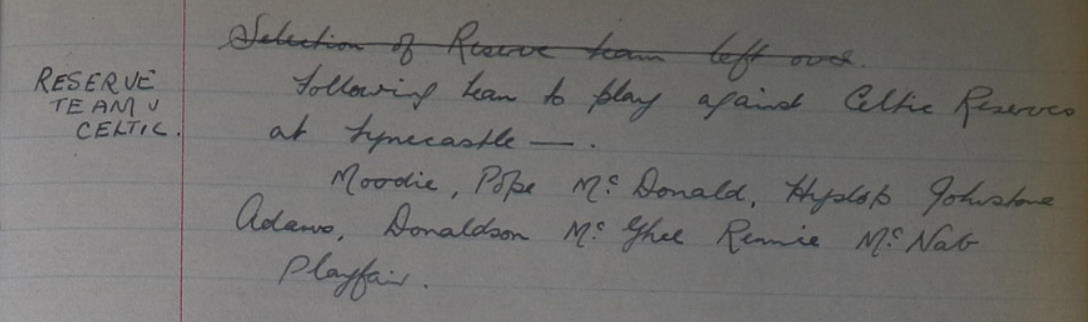 Selection of Reserve team left over.
RESERVE
TEAM V
CELTIC.
Following team to play against Celtic Reserves
at Tynecastle — .
Moodie, Pope Mc Donald, Hyslop Johnstone
Adams, Donaldson Mc Ghee Rennie Mc Nab
Playfair.